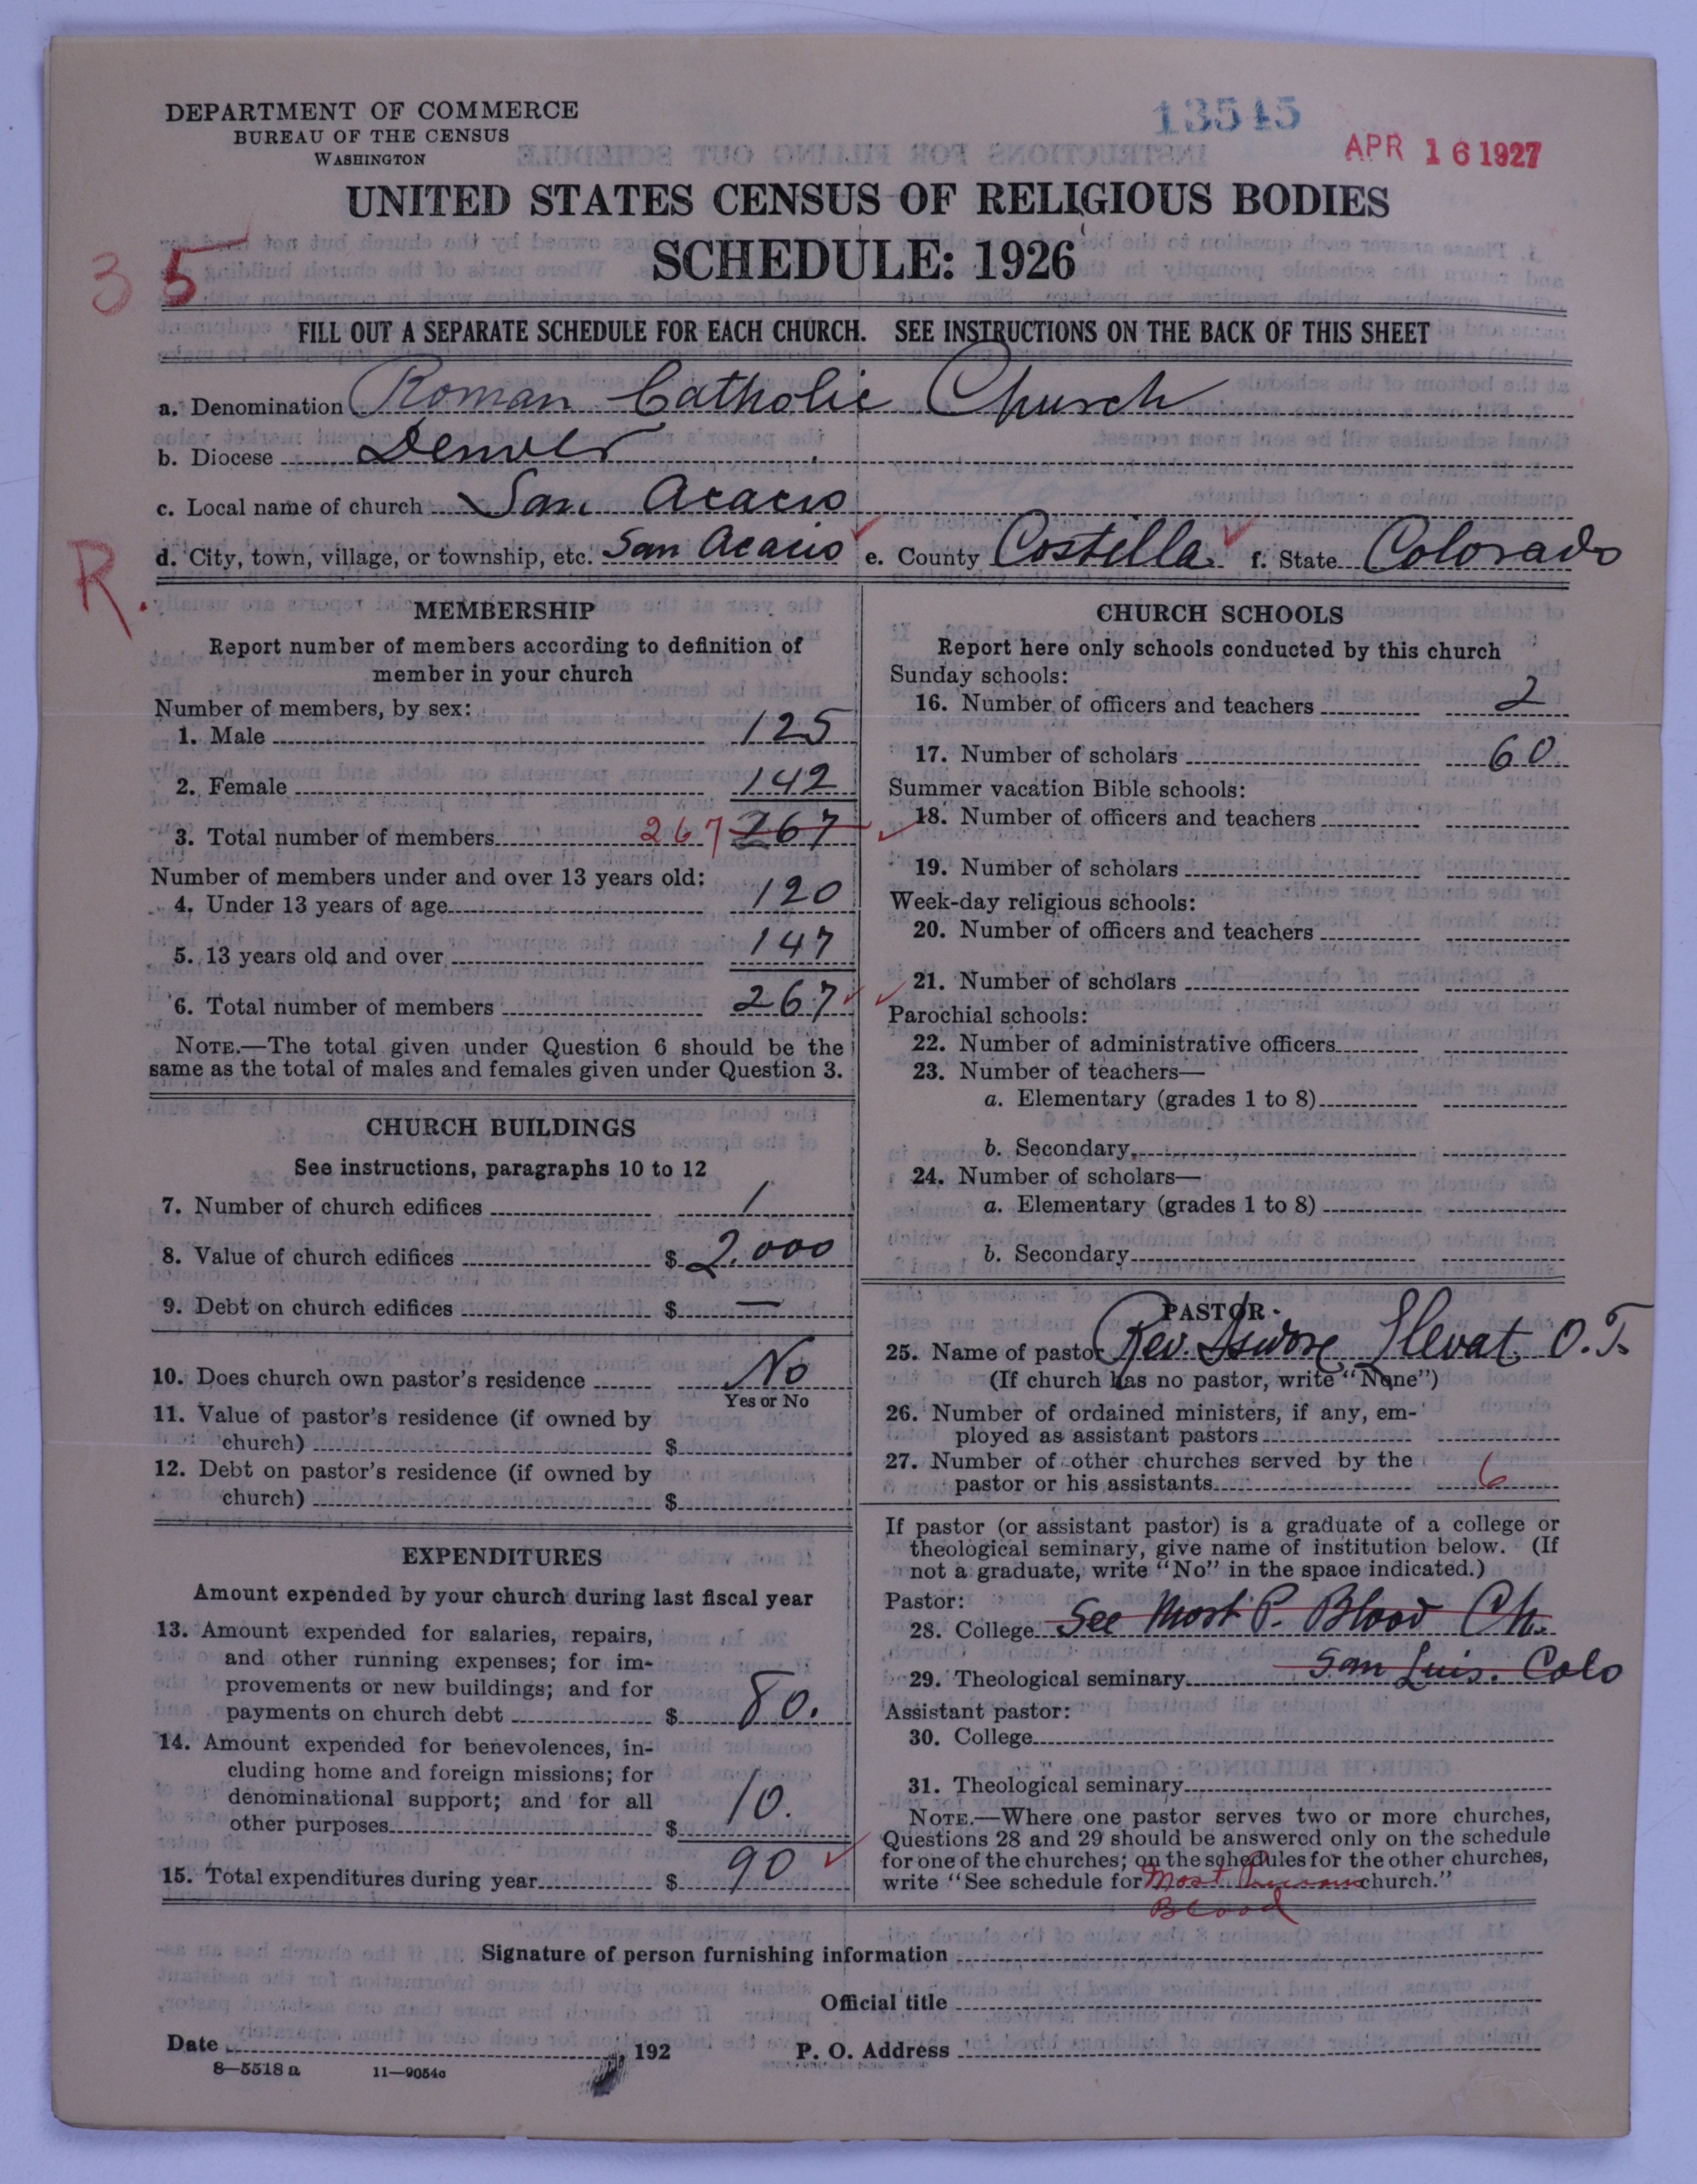 DEPARTMENT OF COMMERCE
BUREAU OF THE CENSUS
WASHINGTON
13545
APR 16 1927
UNITED STATES CENSUS OF RELIGIOUS BODIES
SCHEDULE: 1926
35
FILL OUT A SEPARATE SCHEDULE FOR EACH CHURCH. SEE INSTRUCTIONS ON THE BACK OF THIS SHEET
a. Denomination Roman Catholic Church
b. Diocese Denver
c. Local name of church San Acacio
d. City, town, village, or township, etc. San Acacio e. County Costilla f. State Colorado
R.
MEMBERSHIP
Report number of members according to definition of
member in your church
Number of members, by sex:
1. Male 125
2. Female 142
3. Total number of members 267 267
Number of members under and over 13 years old:
4. Under 13 years of age 120
5. 13 years old and over 147
6. Total number of members 267
NOTE.—The total given under Question 6 should be the
same as the total of males and females given under Question 3.
CHURCH BUILDINGS
See instructions, paragraphs 10 to 12
7. Number of church edifices 1
8. Value of church edifices $ 2,000
9. Debt on church edifices $ —
10. Does church own pastor's residence No
Yes or No
11. Value of pastor's residence (if owned by
church) $
12. Debt on pastor's residence (if owned by
church) $
EXPENDITURES
Amount expended by your church during last fiscal year
13. Amount expended for salaries, repairs,
and other running expenses; for im-
provements or new buildings; and for
payments on church debt $ 80.
14. Amount expended for benevolences, in-
cluding home and foreign missions; for
denominational support; and for all
other purposes $ 10.
15. Total expenditures during year $ 90
CHURCH SCHOOLS
Report here only schools conducted by this church
Sunday schools:
16. Number of officers and teachers 2
17. Number of scholars 60
Summer vacation Bible schools:
18. Number of officers and teachers
19. Number of scholars
Week-day religious schools:
20. Number of officers and teachers
21. Number of scholars
Parochial schools:
22. Number of administrative officers
23. Number of teachers—
a. Elementary (grades 1 to 8)
b. Secondary
24. Number of scholars—
a. Elementary (grades 1 to 8)
b. Secondary
PASTOR
25. Name of pastor Rev. O.T.
(If church has no pastor, write "None")
26. Number of ordained ministers, if any, em-
ployed as assistant pastors
27. Number of other churches served by the
pastor or his assistants 6
If pastor (or assistant pastor) is a graduate of a college or
theological seminary, give name of institution below. (If
not a graduate, write "No" in the space indicated.)
Pastor:
28. College See Most P. Blood Ch.
29. Theological seminary San Luis. Colo
Assistant pastor:
30. College
31. Theological seminary
NOTE.—Where one pastor serves two or more churches,
Questions 28 and 29 should be answered only on the schedule
for one of the churches; on the schedules for the other churches,
write "See schedule for Most Precious church."
Blood
Signature of person furnishing information
Official title
Date 192
P. O. Address
8—5518 a 11—9054a